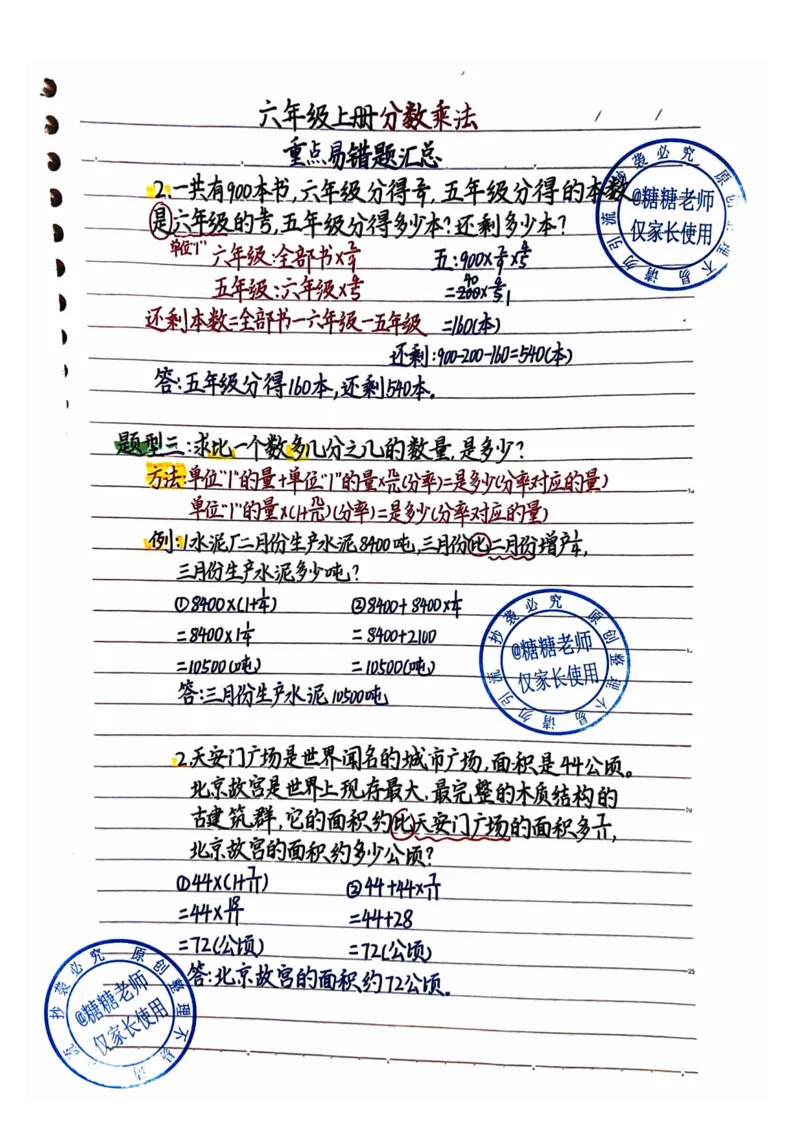 六年级上册分数乘法
重点易错题汇总
2.一共有900本书,六年级分得2/9,五年级分得的本数
是六年级的4/5,五年级分得多少本?还剩多少本?
单位"1" 六年级:全部书×2/9 五:900×2/9×4/5
五年级:六年级×4/5 =200×4/5 40 1
还剩本数=全部书-六年级-五年级 =160(本)
还剩:900-200-160=540(本)
答:五年级分得160本,还剩540本。
题型三:求比一个数多几分之几的数量,是多少?
方法:单位"1"的量+单位"1"的量×几/几(分率)=是多少(分率对应的量)
单位"1"的量×(1+几/几)(分率)=是多少(分率对应的量)
例:1水泥厂二月份生产水泥8400吨,三月份比二月份增产1/4,
三月份生产水泥多少吨?
①8400×(1+1/4) ②8400+8400×1/4
=8400×1 1/4 =8400+2100
=10500(吨) =10500(吨)
答:三月份生产水泥10500吨
2.天安门广场是世界闻名的城市广场,面积是44公顷。
北京故宫是世界上现存最大、最完整的木质结构的
古建筑群,它的面积约比天安门广场的面积多7/11,
北京故宫的面积约多少公顷?
①44×(1+7/11) ②44+44×7/11
=44×18/11 =44+28
=72(公顷) =72(公顷)
答:北京故宫的面积约72公顷。
@糖糖老师
仅家长使用
原创整理不易请勿引流抄袭必究
@糖糖老师
仅家长使用
原创整理不易请勿引流抄袭必究
@糖糖老师
仅家长使用